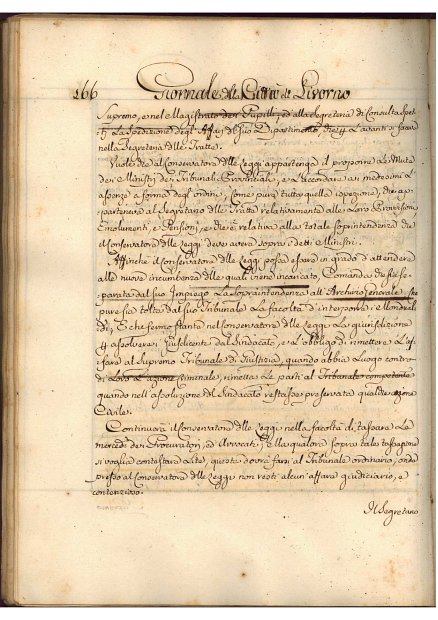 166 Giornale della Città di Livorno
Supremo, e nel Magistrato dei Pupilli, ed alla Segreteria di Consulta spet-
La Spedizione degl'Affari del suo Dipartimento, che p. l'avanti si facea
nella Segreteria delle Tratte.
Vuole che al Conservatore delle Leggi appartenga il proporre le Mute
dei Ministri dei Tribunali Provinciali, e accordare ai medesimi l'
assenza a forma degl'ordini, come pure tutta quella ispezione, che ap-
parteneva al Segretario delle Tratte relativamente alle Loro Provvisioni
Emolumenti, e Pensioni, e che è relativa alla totale soprintendenza che
il Conservatore delle Leggi deve avere sopra i detti Ministri.
Affinchè il Conservatore delle Leggi possa essere in grado di attendere
alle nuove incumbenze delle quali viene incaricato, Comanda che sia se-
parata dal suo Impiego La Sopraintendenza all'Archivio Generale, sia
pure sia tolta dal suo Tribunale La facoltà d'interporre i Mondual-
di; E che fermo stante nel Conservatore delle Leggi La Giurisdizione
p. assolvere i Giusdicenti dal Sindacato, e L'obbligo di rimettere L'af-
fare al Supremo Tribunale di Giustizia, quando abbia Luogo contro
di Loro L'azione Criminale, rimetta Le parti al Tribunale competente
quando nell'assoluzione del Sindacato restasse preservata qualche azione
Civile.
Continuerà il Conservatore delle Leggi nella facoltà di tassare La
mercede dei Procuratori, ed Avvocati, e alla qualora sopra tale tassazione
si voglia contestare Lite, questa dovrà farsi al Tribunale ordinario, onde
presso al Conservatore delle Leggi non resti alcun'affare giudiciario, e
contenzioso.
Il Segretario